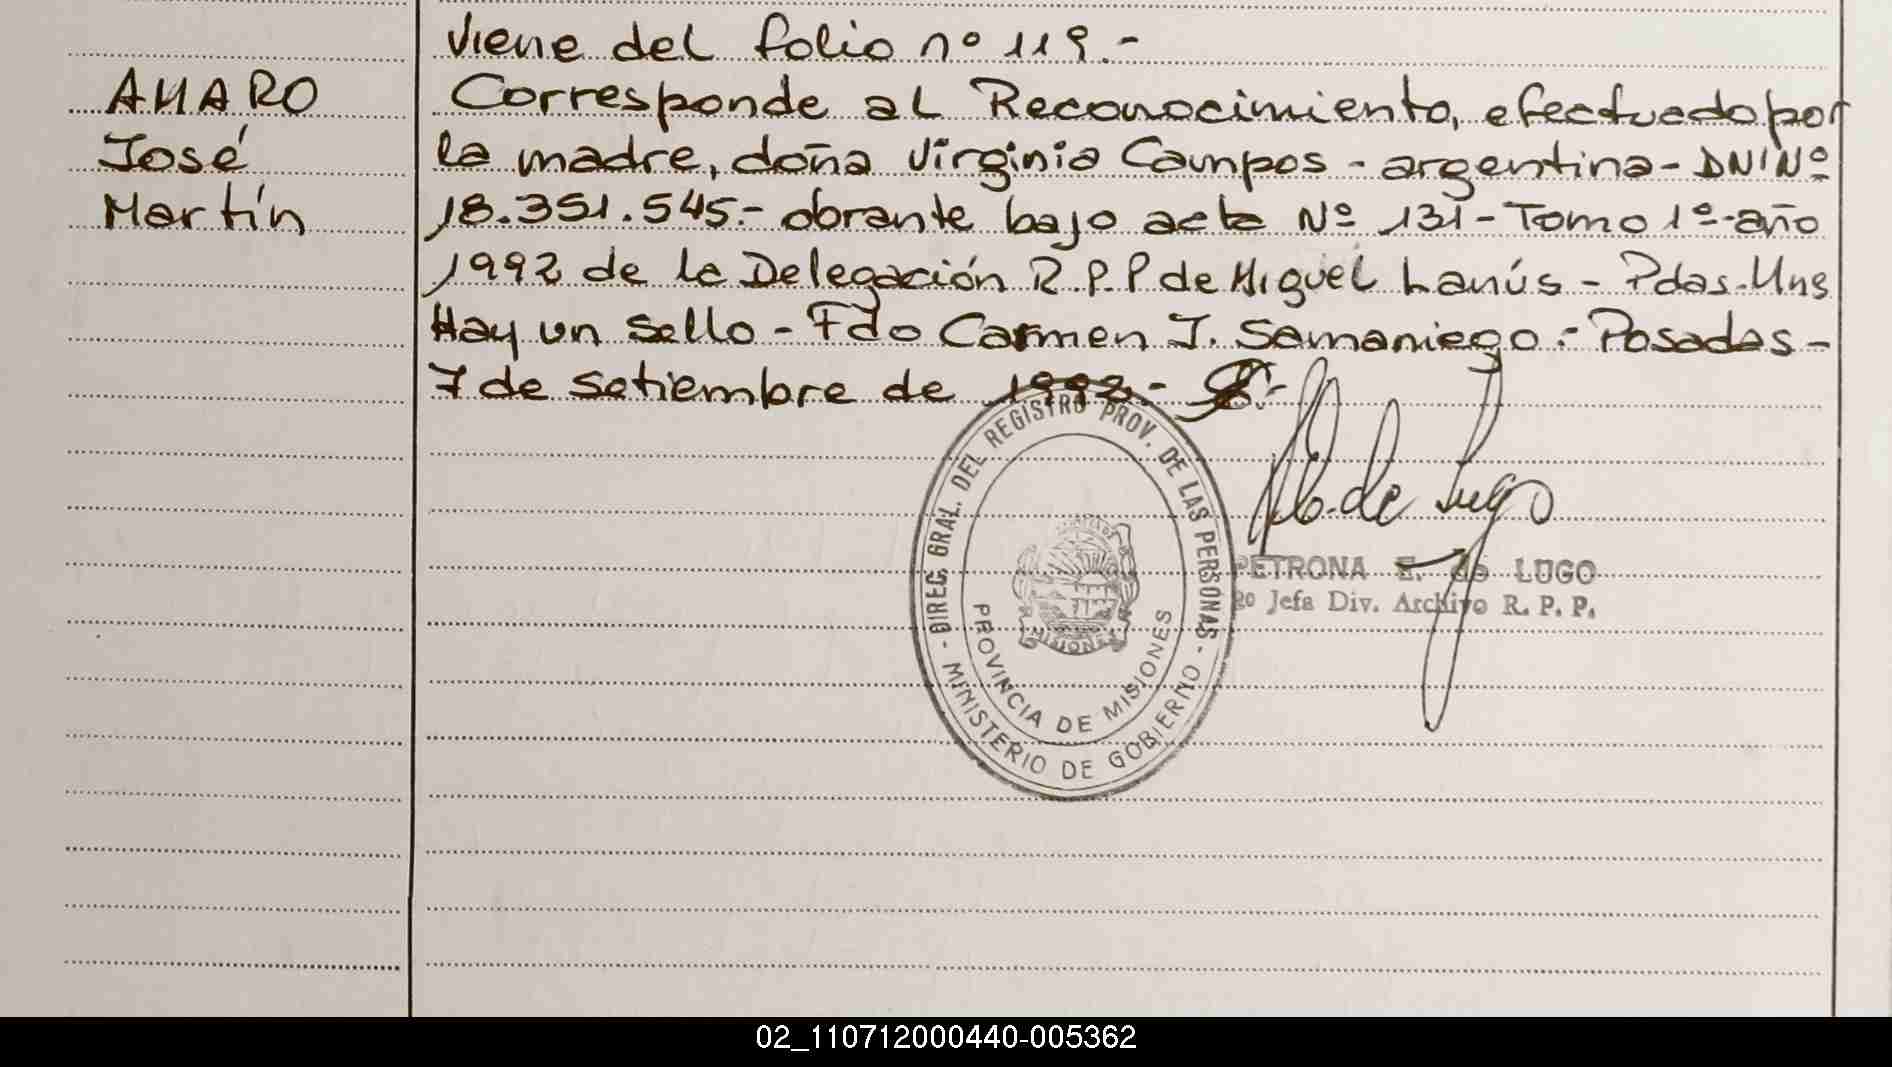 viene del folio nº 119.-
AMARO
José
Martín
Corresponde al Reconocimiento, efectuado por
la madre, doña Virginia Campos - argentina - DNI Nº
18.351.545.- obrante bajo acta Nº 131 - Tomo 1º - año
1992 de la Delegación R.P.P de Miguel Lanús - Pdas. Mns
Hay un sello - Fdo Carmen J. Samaniego.- Posadas -
7 de setiembre de 1992.-
DIREC. GRAL. DEL REGISTRO PROV. DE LAS PERSONAS - MINISTERIO DE GOBIERNO -
PROVINCIA DE MISIONES
MISIONES
de Lugo
PETRONA E. de LUGO
2º Jefa Div. Archivo R. P. P.
02_110712000440-005362